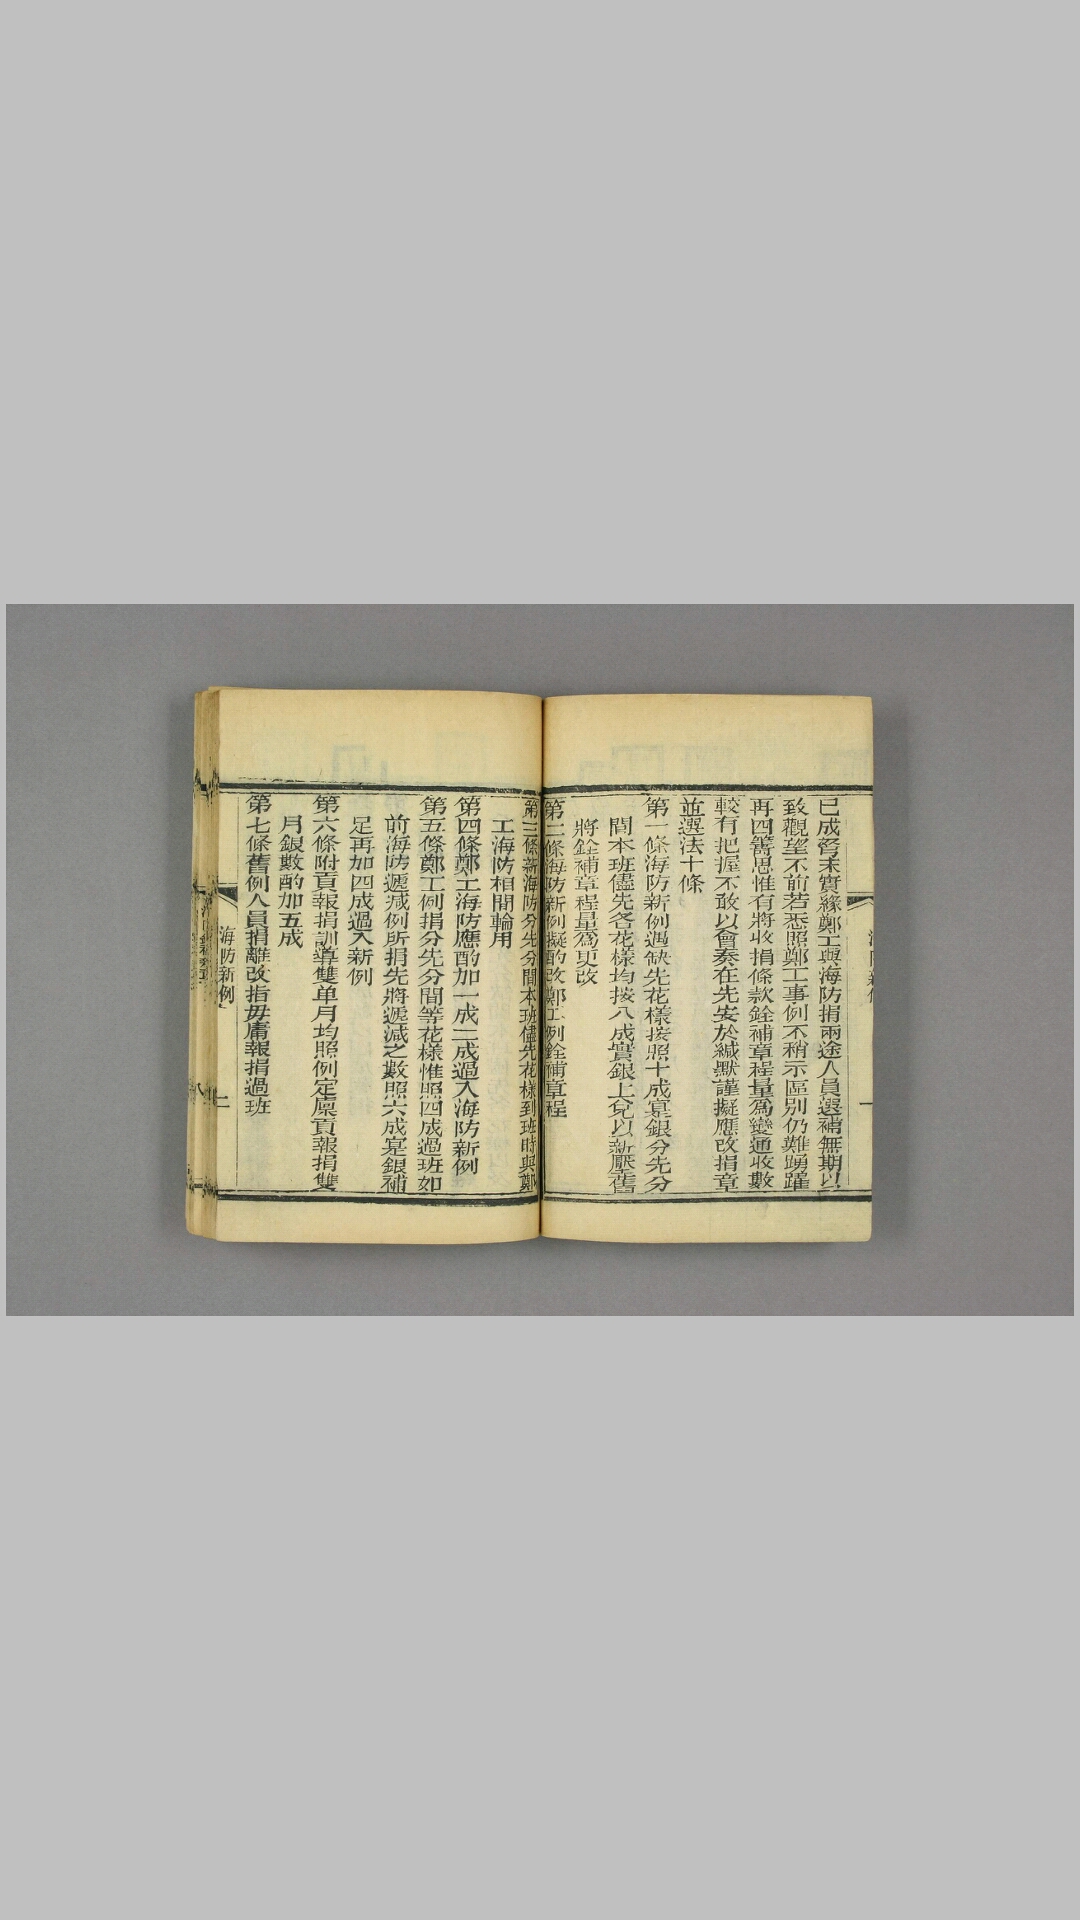 已成脊未實緣鄭工與海防捐兩途人員選補無期以
致觀望不前若悉照鄭工事例不稍示區別仍難踴躍
再四籌思惟有將收捐條款銓補章程量為變通收數
較有把握不敢以會奏在先安於緘默謹擬應改捐章
並選法十條
第一條海防新例遇缺先花樣按照十成寔銀分先分
間本班儘先各花樣均按八成實銀上兌以新壓舊
將銓補章程量為更改
第二條海防新例擬酌改鄭工例銓補章程
第三條新海防分先分間本班儘先花樣到班時與鄭
工海防相間輪用
第四條鄭工海防應酌加一成二成過入海防新例
第五條鄭工例捐分先分間等花樣惟照四成過班如
前海防遞減例所捐先將遞減之數照六成寔銀補
足再加四成過入新例
第六條附貢報捐訓導雙单月均照例定廩貢報捐雙
月銀數酌加五成
第七條舊例人員捐離改指毋庸報捐過班
海防新例
二